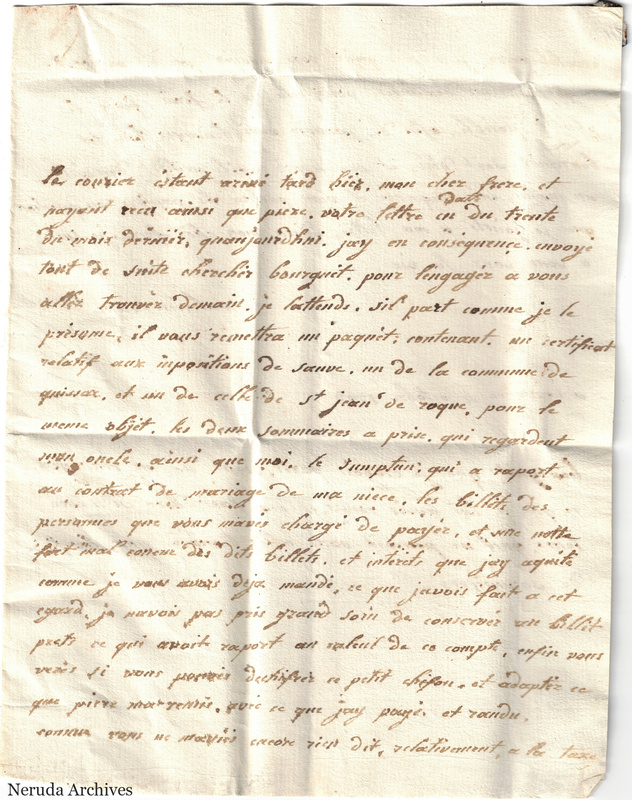 le courier estant arivé tard hier, mon cher frere, et
nayant recu ainsi que piere, votre lettre en datte du trente
du mois dernier, quaujourdhui, jay en consequence envoyé
tout de suite chercher bourguet, pour lengager a vous
aller trouver demain, je lattends, sil part comme je le
présume, il vous remettra un paquet, contenant, un certificat
relatif aux impositions de sauve, un de la commune de
quissac, et un de celle de st jean de roque, pour le
meme objet, les deux sommaires a prise, qui regardent
mon oncle, ainsi que moi, le sumptum, qui a raport
au contrat de mariage de ma niece, les billets des
personnes que vous mavés chargé de payer, et une notte
fort mal concue des dits billets, et interets que jay aquité
comme je vous avois deja mandé, ce que javois fait a cet
egard, je navois pas pris grand soin de conserver un billet
prets ce qui avoit raport au de ce compte, enfin vous
verés si vous pouvés dechifrer ce petit chifon, et adapter ce
que piere mat remis, avec ce que jay payé et randu,
comme vous ne maviés encore rien dit, relativement, a la taxe
Neruda Archives